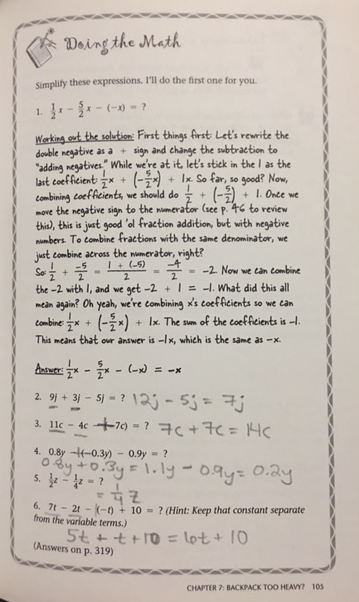 Doing the Math
Simplify these expressions. I'll do the first one for you.
1. 1/2 x − 5/2 x − (−x) = ?
Working out the solution: First things first: Let's rewrite the
double negative as a + sign and change the subtraction to
"adding negatives." While we're at it, let's stick in the 1 as the
last coefficient: 1/2 x + (−5/2 x) + 1x. So far, so good? Now,
combining coefficients, we should do 1/2 + (−5/2) + 1. Once we
move the negative sign to the numerator (see p. 46 to review
this), this is just good 'ol fraction addition, but with negative
numbers. To combine fractions with the same denominator, we
just combine across the numerator, right?
So: 1/2 + −5/2 = 1 + (−5)/2 = −4/2 = −2. Now we can combine
the −2 with 1, and we get −2 + 1 = −1. What did this all
mean again? Oh yeah, we're combining x's coefficients so we can
combine: 1/2 x + (−5/2 x) + 1x. The sum of the coefficients is −1.
This means that our answer is −1x, which is the same as −x.
Answer: 1/2 x − 5/2 x − (−x) = −x
2. 9j + 3j − 5j = ? 12j − 5j = 7j
3. 11c − 4c − (−7c) = ? 7c + 7c = 14c
4. 0.8y − (−0.3y) − 0.9y = ?
0.8y + 0.3y = 1.1y − 0.9y = 0.2y
5. 1/2 z − 1/4 z = ?
= 1/4 z
6. 7t − 2t − (−t) + 10 = ? (Hint: Keep that constant separate
from the variable terms.)
5t + t + 10 = 6t + 10
(Answers on p. 319)
CHAPTER 7: BACKPACK TOO HEAVY? 105